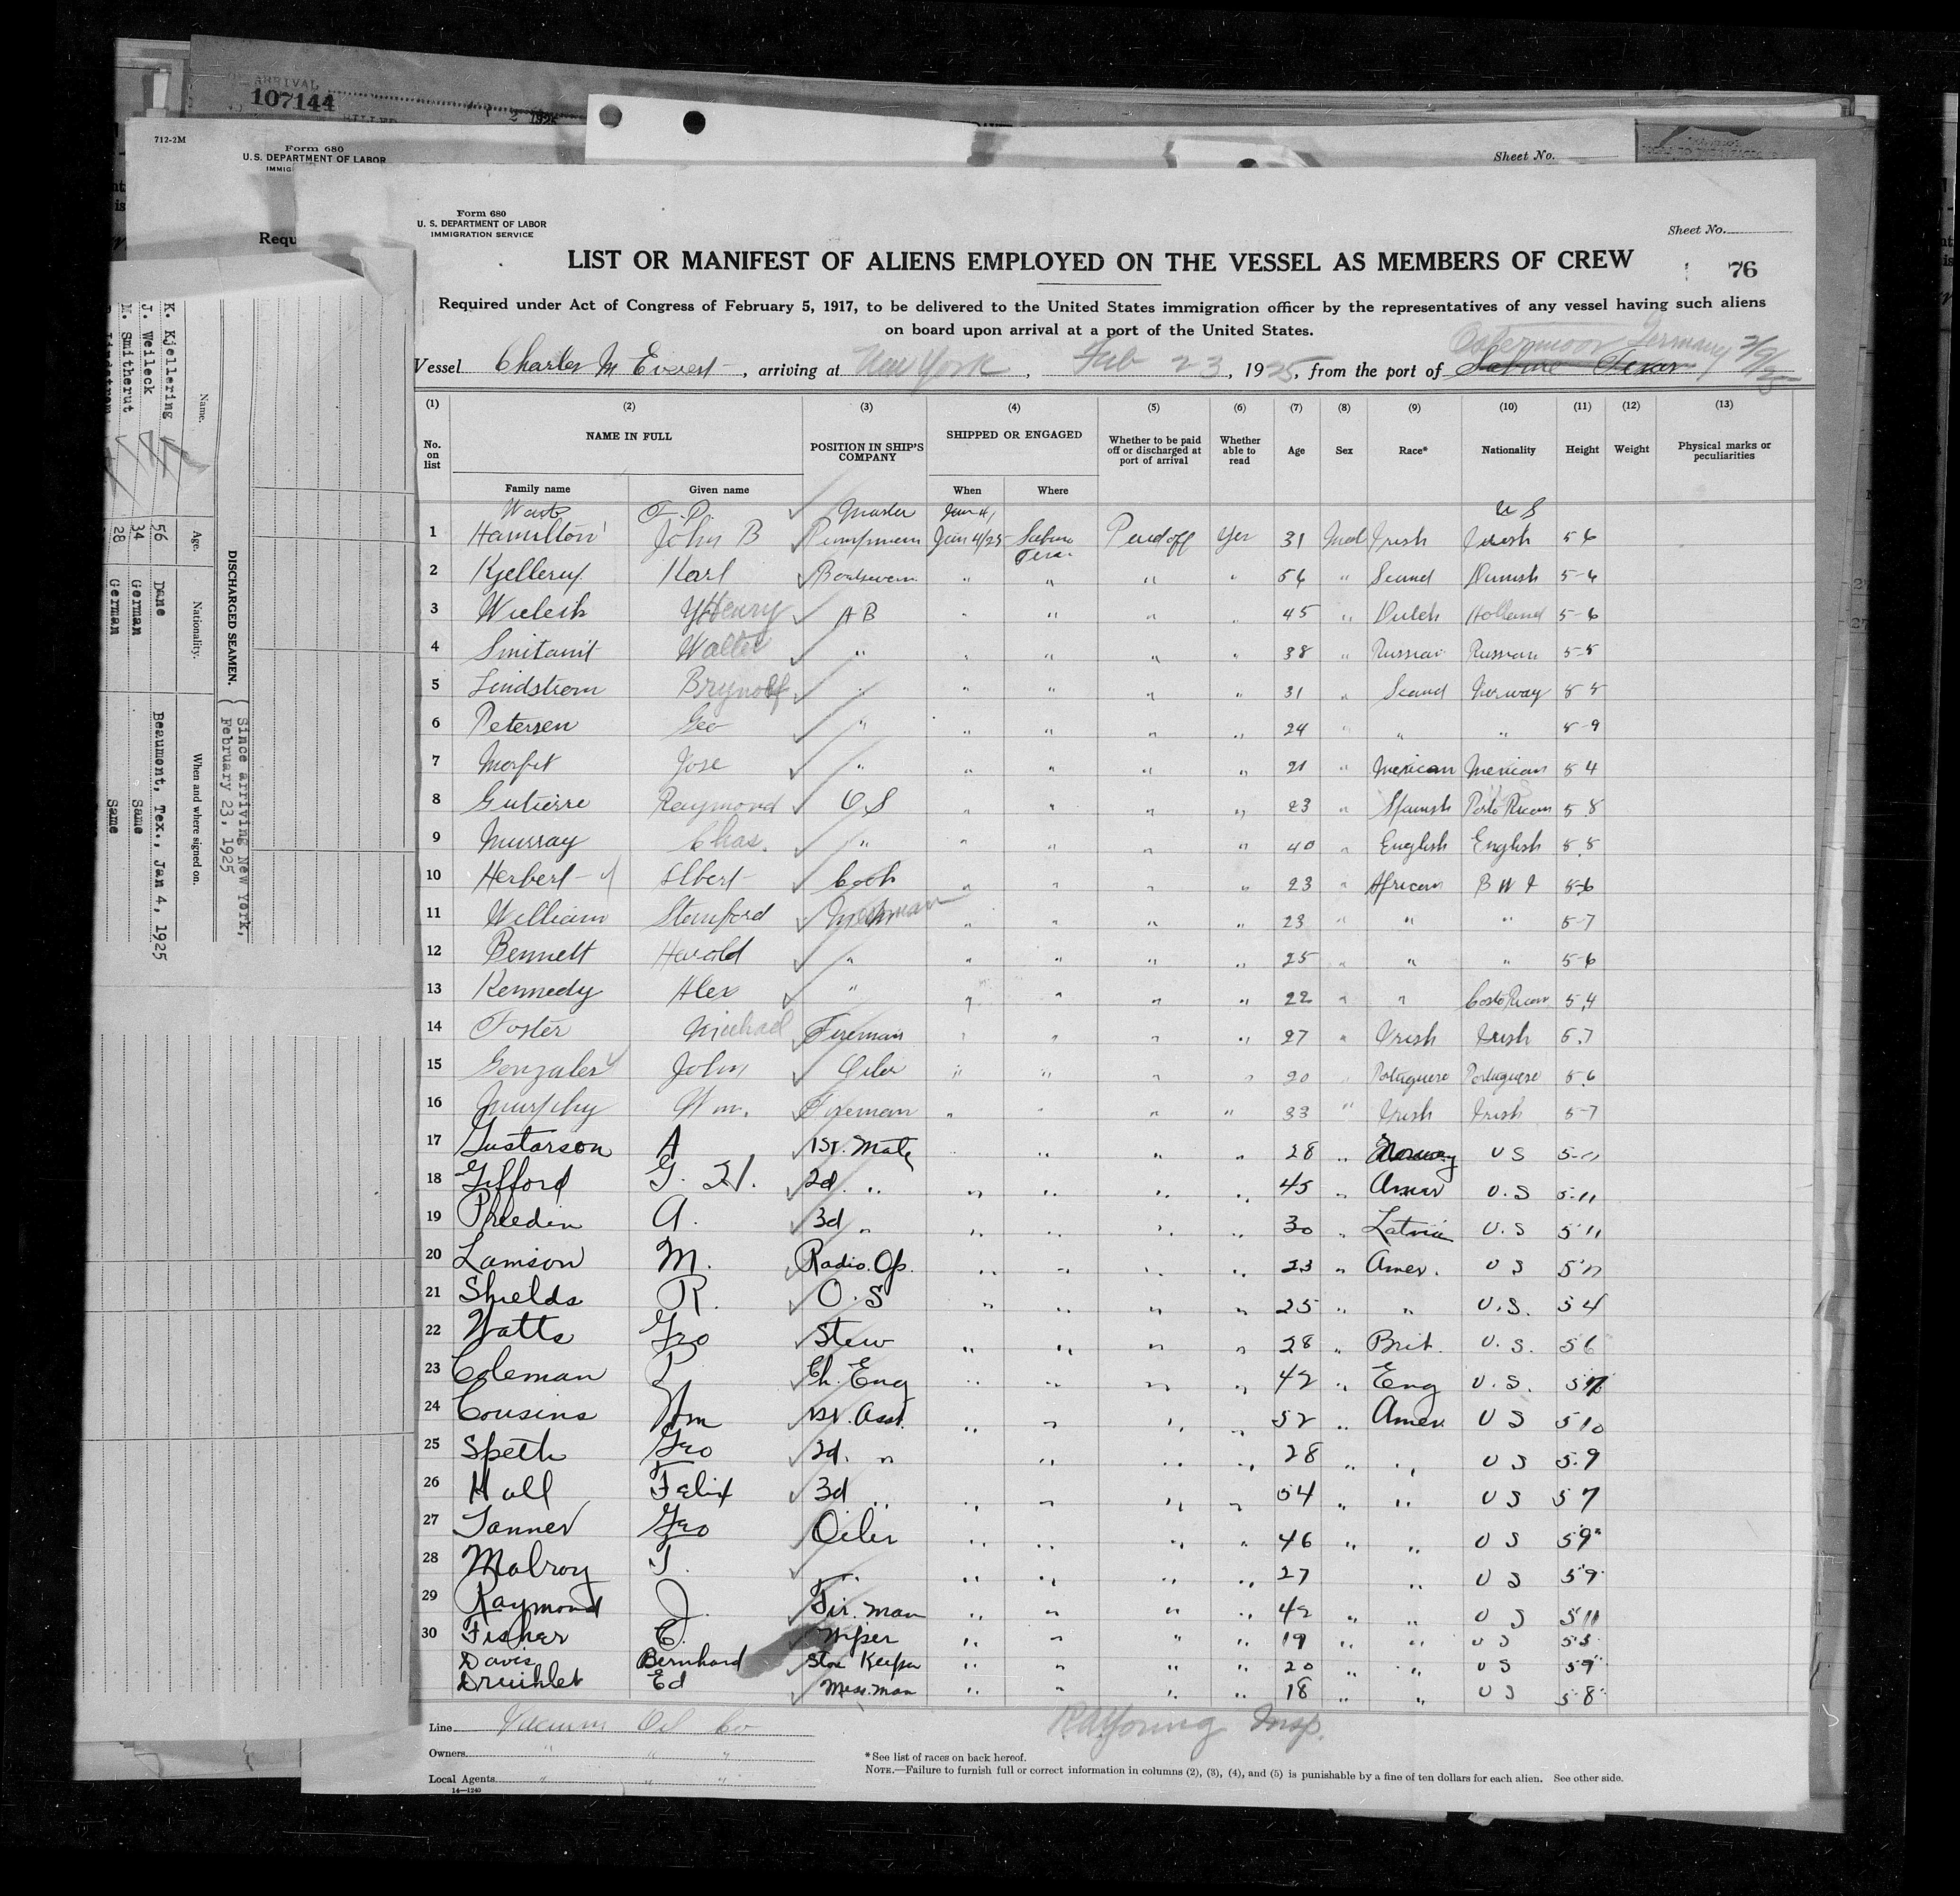 ARRIVAL
107144
712-2M
Form 680
U.S. DEPARTMENT OF LABOR
IMMIG
Sheet No.
Requ
Form 680
U. S. DEPARTMENT OF LABOR
IMMIGRATION SERVICE
Sheet No.
LIST OR MANIFEST OF ALIENS EMPLOYED ON THE VESSEL AS MEMBERS OF CREW
76
Required under Act of Congress of February 5, 1917, to be delivered to the United States immigration officer by the representatives of any vessel having such aliens
on board upon arrival at a port of the United States.
Germany
Vessel Charles M Everest, arriving at New York, Feb 23, 1925, from the port of Sabine Texas
(1) (2) (3) (4) (5) (6) (7) (8) (9) (10) (11) (12) (13)
No. on list NAME IN FULL POSITION IN SHIP'S COMPANY SHIPPED OR ENGAGED Whether to be paid off or discharged at port of arrival Whether able to read Age Sex Race* Nationality Height Weight Physical marks or peculiarities
Family name Given name When Where
Master U S
1 Hamilton John B Pumpman Jan 4/25 Sabine Texas Paid off Yes 31 Male Irish Irish 5 6
2 Karl " " " " " Scand Danish 5-6
3 Henry A B " " " " 45 " Dutch Holland 5-6
4 Walter " " " " " 38 " Russian Russian 5-5
5 Lindstrom " " " " " 31 " Scand Norway 5 5
6 Petersen Geo " " " " " 24 " " " 5-9
7 Jose " " " " " 21 " Mexican Mexican 5 4
8 Gutierre Raymond O S " " " " 23 " Spanish Porto Rican 5.8
9 Murray Chas. " " " " " 40 " English English 5.8
10 Herbert Albert Cook " " " " 23 " African B W I 5-6
11 William Stanford Messman " " " " 23 " " " 5-7
12 Bennett Harold " " " " " 25 " " " 5-6
13 Kennedy Alex " " " " " 22 " " Costa Rican 5.4
14 Foster Michael Fireman " " " " 27 " Irish Irish 5.7
15 Gonzales John Oiler " " " " 20 " Portuguese Portuguese 5.6
16 Murphy Wm. Fireman " " " " 33 " Irish Irish 5-7
17 Gustarson A 1st. Mate " " " " 28 " Norway U S 5-11
18 Gifford G. H. 2d. " " " " " 45 " Amer U.S 5-11
19 A. 3d " " " " " 30 " Latvia U.S 5'11
20 Lamson M. Radio. Op. " " " " 23 " Amer. U S
21 Shields R. O. S " " " " 25 " " U.S. 5 4
22 Watts Geo Stew " " " " 28 " Brit. U.S. 5 6
23 Coleman P. Ch. Eng " " " " 42 " Eng U.S.
24 Cousins Wm 1st. Asst. " " " " 52 " Amer U S 5 10
25 Speth Geo 2d. " " " " " 28 " " U S 5.9
26 Hall Felix 3d " " " " " 54 " " U S 5 7
27 Tanner Geo Oiler " " " " 46 " " U S 5 9"
28 Malroy " " " " " 27 " U S 5'9"
29 Raymond J. Fir. Man " " " " 42 " " U S 5'11
30 Fisher C. Wiper " " " " 19 " " U S
Davis Bernhard Stor Keeper " " " " 20 " " U S
Ed Mess. man " " " " 18 " " U S 5 8"
Line Vacuum Oil Co
R A Young Insp.
Owners " " "
*See list of races on back hereof.
NOTE.—Failure to furnish full or correct information in columns (2), (3), (4), and (5) is punishable by a fine of ten dollars for each alien. See other side.
Local Agents " " "
14—1240
DISCHARGED SEAMEN. { Since arriving New York,
February 23, 1925
Name. Age. Nationality. When and where signed on.
K. Kjellering 56 Dane Beaumont, Tex., Jan 4, 1925
J. Weileck 34 German Same
M. Smitherut 28 German Same